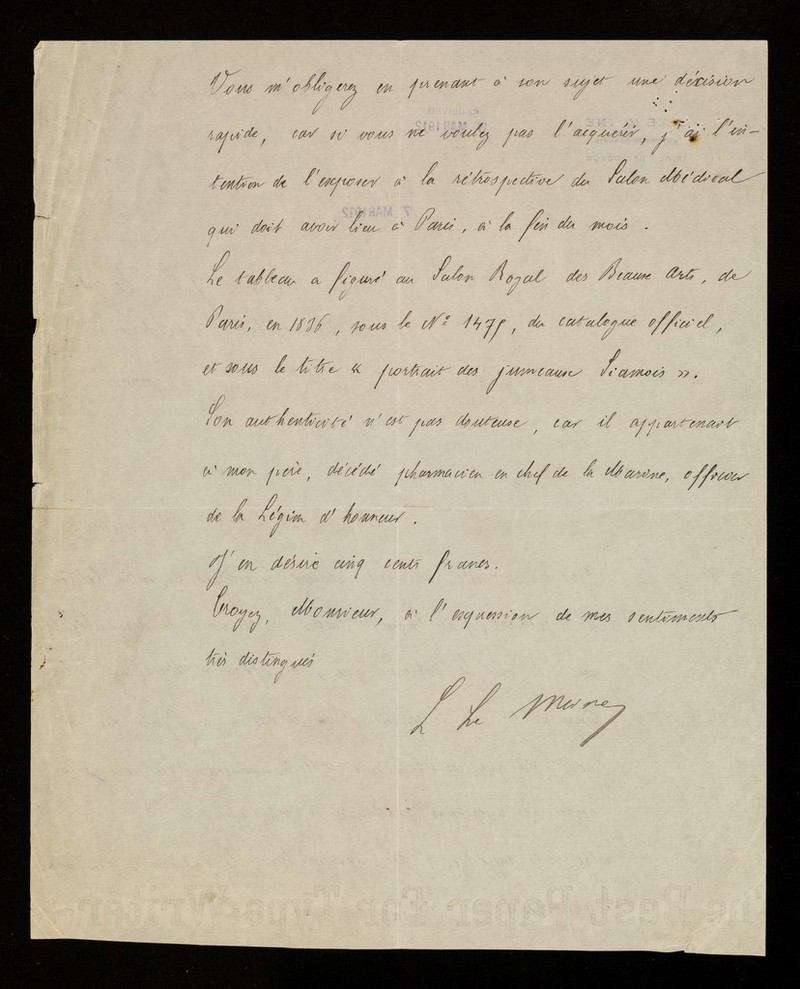 Vous m'obligerez en prenant à son sujet une décision
rapide, car si vous ne voulez pas l'acquérir, j'ai l'in-
tention de l'exposer à la rétrospective du Salon Médical
qui doit avoir lieu à Paris, à la fin du mois.
Le tableau a figuré au Salon Royal des Beaux Arts, de
Paris, en 1836, sous le Nº, du catalogue officiel,
et sous le titre « portrait des jumeaux Siamois ».
Son authenticité n'est pas douteuse, car il appartenait
à mon père, décédé pharmacien en chef de la Marine, officier
de la Légion d'honneur.
J'en désire cinq cents francs.
Croyez, Monsieur, à l'expression de mes sentiments
très distingués
L Le
7 MAR 1912
The Best Paper For Type-Writer-